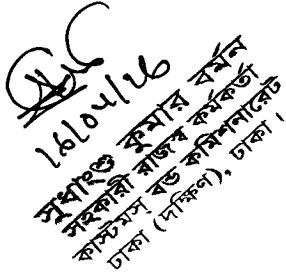 16/04/26
সুধাংশু কুমার বর্মন
সহকারী রাজস্ব কর্মকর্তা
কাস্টমস্ বন্ড কমিশনারেট
ঢাকা (দক্ষিণ), ঢাকা।